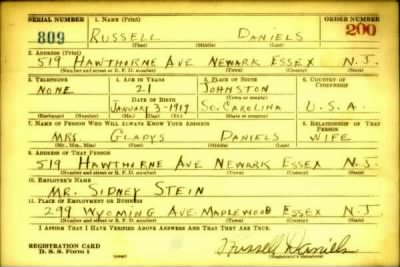 SERIAL NUMBER 1. NAME (Print) ORDER NUMBER
809 RUSSELL DANIELS 200
(First) (Middle) (Last)
2. ADDRESS (Print)
519 HAWTHORNE AVE NEWARK ESSEX N.J.
(Number and street or R. F. D. number) (Town) (County) (State)
3. TELEPHONE 4. AGE IN YEARS 5. PLACE OF BIRTH 6. COUNTRY OF CITIZENSHIP
NONE 21 JOHNSTON
DATE OF BIRTH (Town or county)
JANUARY 3-1919 SO. CAROLINA U.S.A.
7. NAME OF PERSON WHO WILL ALWAYS KNOW YOUR ADDRESS 8. RELATIONSHIP OF THAT PERSON
MRS. GLADYS DANIELS WIFE
(Mr., Mrs., Miss) (First) (Middle) (Last)
9. ADDRESS OF THAT PERSON
519 HAWTHORNE AVE NEWARK ESSEX N.J.
(Number and street or R. F. D. number) (Town) (County) (State)
10. EMPLOYER'S NAME
MR. SIDNEY STEIN
11. PLACE OF EMPLOYMENT OR BUSINESS
299 WYOMING AVE MAPLEWOOD ESSEX N.J.
(Number and street or R. F. D. number) (Town) (County) (State)
I AFFIRM THAT I HAVE VERIFIED ABOVE ANSWERS AND THAT THEY ARE TRUE.
REGISTRATION CARD Russell Daniels
D. S. S. Form 1 (Registrant's signature)